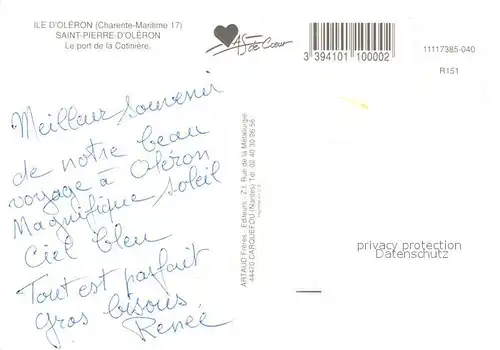 ILE D'OLÉRON (Charente-Maritime 17)
SAINT-PIERRE-D'OLÉRON
Le port de la Cotinière.
As de Cœur
3 394101 100002
11117385-040
R151
Meilleur souvenir
de notre beau
voyage à Oléron
Magnifique soleil
Ciel bleu
Tout est parfait
Gros bisous
Renée
ARTAUD Frères - Editeurs - Z.I. Rue de la Métallurgie
44470 CARQUEFOU (Nantes) Tél. 02 40 30 26 56
privacy protection
Datenschutz